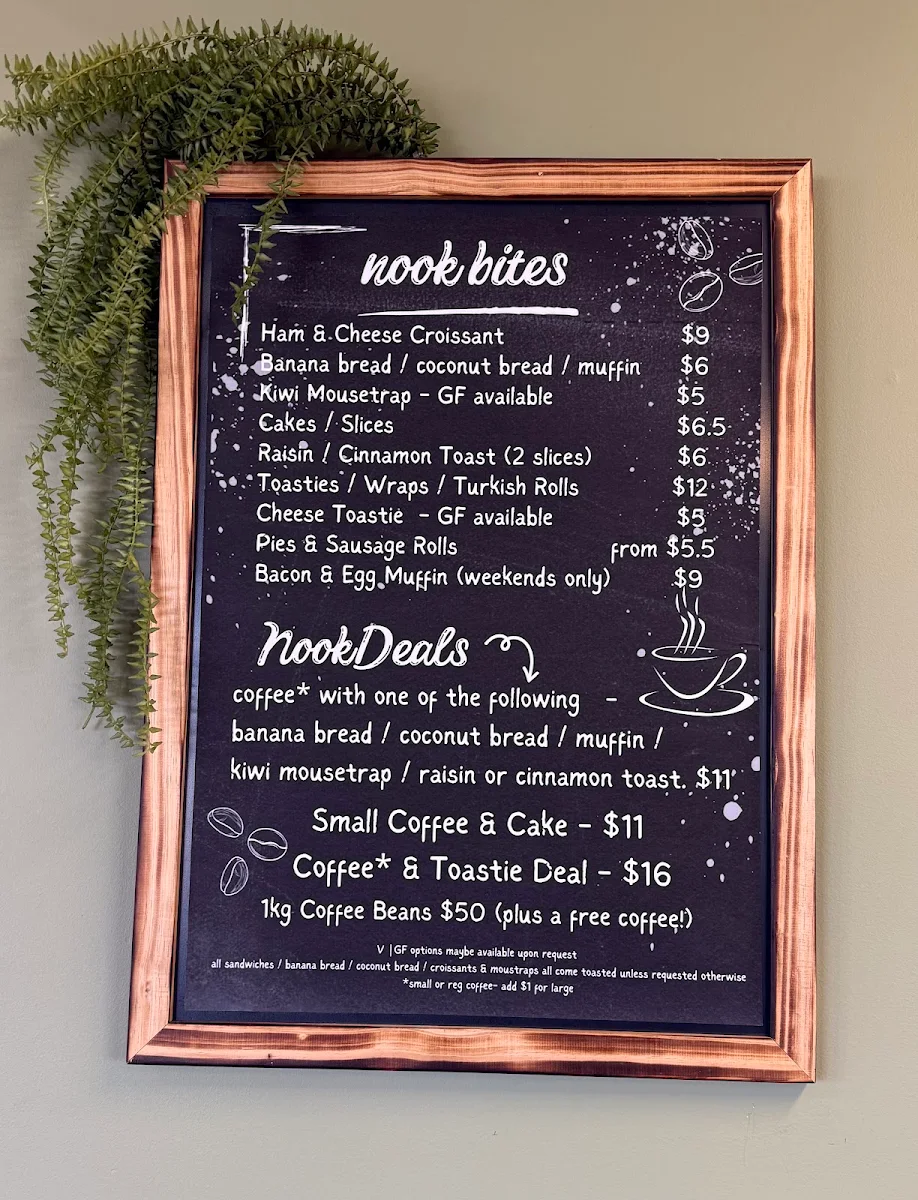 nook bites
Ham & Cheese Croissant $9
Banana bread / coconut bread / muffin $6
Kiwi Mousetrap - GF available $5
Cakes / Slices $6.5
Raisin / Cinnamon Toast (2 slices) $6
Toasties / Wraps / Turkish Rolls $12
Cheese Toastie - GF available $5
Pies & Sausage Rolls from $5.5
Bacon & Egg Muffin (weekends only) $9
NookDeals
coffee* with one of the following -
banana bread / coconut bread / muffin /
kiwi mousetrap / raisin or cinnamon toast. $11
Small Coffee & Cake - $11
Coffee* & Toastie Deal - $16
1kg Coffee Beans $50 (plus a free coffee!)
V | GF options maybe available upon request
all sandwiches / banana bread / coconut bread / croissants & moustraps all come toasted unless requested otherwise
*small or reg coffee- add $1 for large